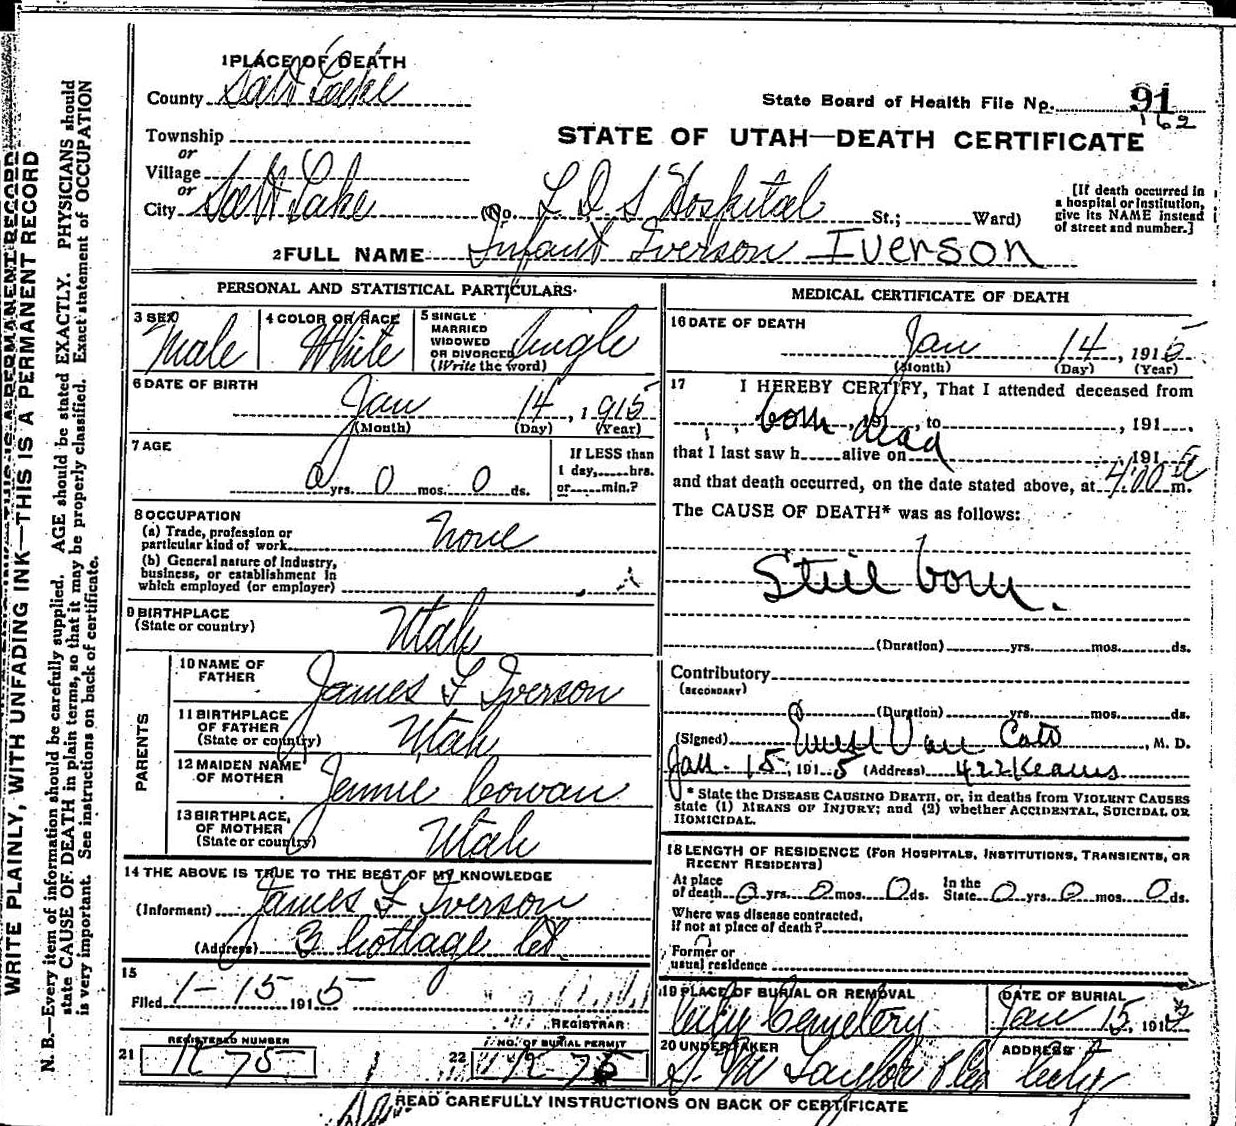 WRITE PLAINLY, WITH UNFADING INK—THIS IS A PERMANENT RECORD
N. B.—Every item of information should be carefully supplied. AGE should be stated EXACTLY. PHYSICIANS should
state CAUSE OF DEATH in plain terms, so that it may be properly classified. Exact statement of OCCUPATION
is very important. See instructions on back of certificate.
1 PLACE OF DEATH
County Salt Lake
State Board of Health File No. 91
162
Township
or
Village
or
City Salt Lake
STATE OF UTAH—DEATH CERTIFICATE
(No. L D S Hospital St.; Ward)
[If death occurred in
a hospital or institution,
give its NAME instead
of street and number.]
2 FULL NAME Infant Iverson IVerson
PERSONAL AND STATISTICAL PARTICULARS
3 SEX
Male
4 COLOR OR RACE
White
5 SINGLE
MARRIED
WIDOWED
OR DIVORCED
(Write the word)
Single
6 DATE OF BIRTH
Jan 14, 1915
(Month) (Day) (Year)
7 AGE
0 yrs. 0 mos. 0 ds.
If LESS than
1 day, hrs.
or min.?
8 OCCUPATION
(a) Trade, profession or
particular kind of work None
(b) General nature of Industry,
business, or establishment in
which employed (or employer)
9 BIRTHPLACE
(State or country) Utah
PARENTS
10 NAME OF
FATHER James F Iverson
11 BIRTHPLACE
OF FATHER
(State or country) Utah
12 MAIDEN NAME
OF MOTHER Jennie Cowan
13 BIRTHPLACE,
OF MOTHER
(State or country) Utah
14 THE ABOVE IS TRUE TO THE BEST OF MY KNOWLEDGE
(Informant) James F Iverson
(Address) 3 Cottage Ct
15
Filed 1-15 1915
REGISTRAR
REGISTERED NUMBER
21
NO. OF BURIAL PERMIT
22
MEDICAL CERTIFICATE OF DEATH
16 DATE OF DEATH
Jan 14, 1915
(Month) (Day) (Year)
17 I HEREBY CERTIFY, That I attended deceased from
born dead, 191, to , 191
that I last saw h alive on 191
and that death occurred, on the date stated above, at 4:00 a m.
The CAUSE OF DEATH* was as follows:
Still born.
(Duration) yrs. mos. ds.
Contributory
(SECONDARY)
(Duration) yrs. mos. ds.
(Signed) Ernest Van Cott, M. D.
Jan. 15, 1915 (Address) 422 Kearns
* State the DISEASE CAUSING DEATH, or, in deaths from VIOLENT CAUSES
state (1) MEANS OF INJURY; and (2) whether ACCIDENTAL, SUICIDAL OR
HOMICIDAL.
18 LENGTH OF RESIDENCE (FOR HOSPITALS, INSTITUTIONS, TRANSIENTS, OR
RECENT RESIDENTS)
At place
of death 0 yrs. 0 mos. 0 ds.
In the
State 0 yrs. 0 mos. 0 ds.
Where was disease contracted,
if not at place of death?
Former or
usual residence
19 PLACE OF BURIAL OR REMOVAL
City Cemetery
DATE OF BURIAL
Jan 15, 1915
20 UNDERTAKER
Taylor
ADDRESS
City
READ CAREFULLY INSTRUCTIONS ON BACK OF CERTIFICATE